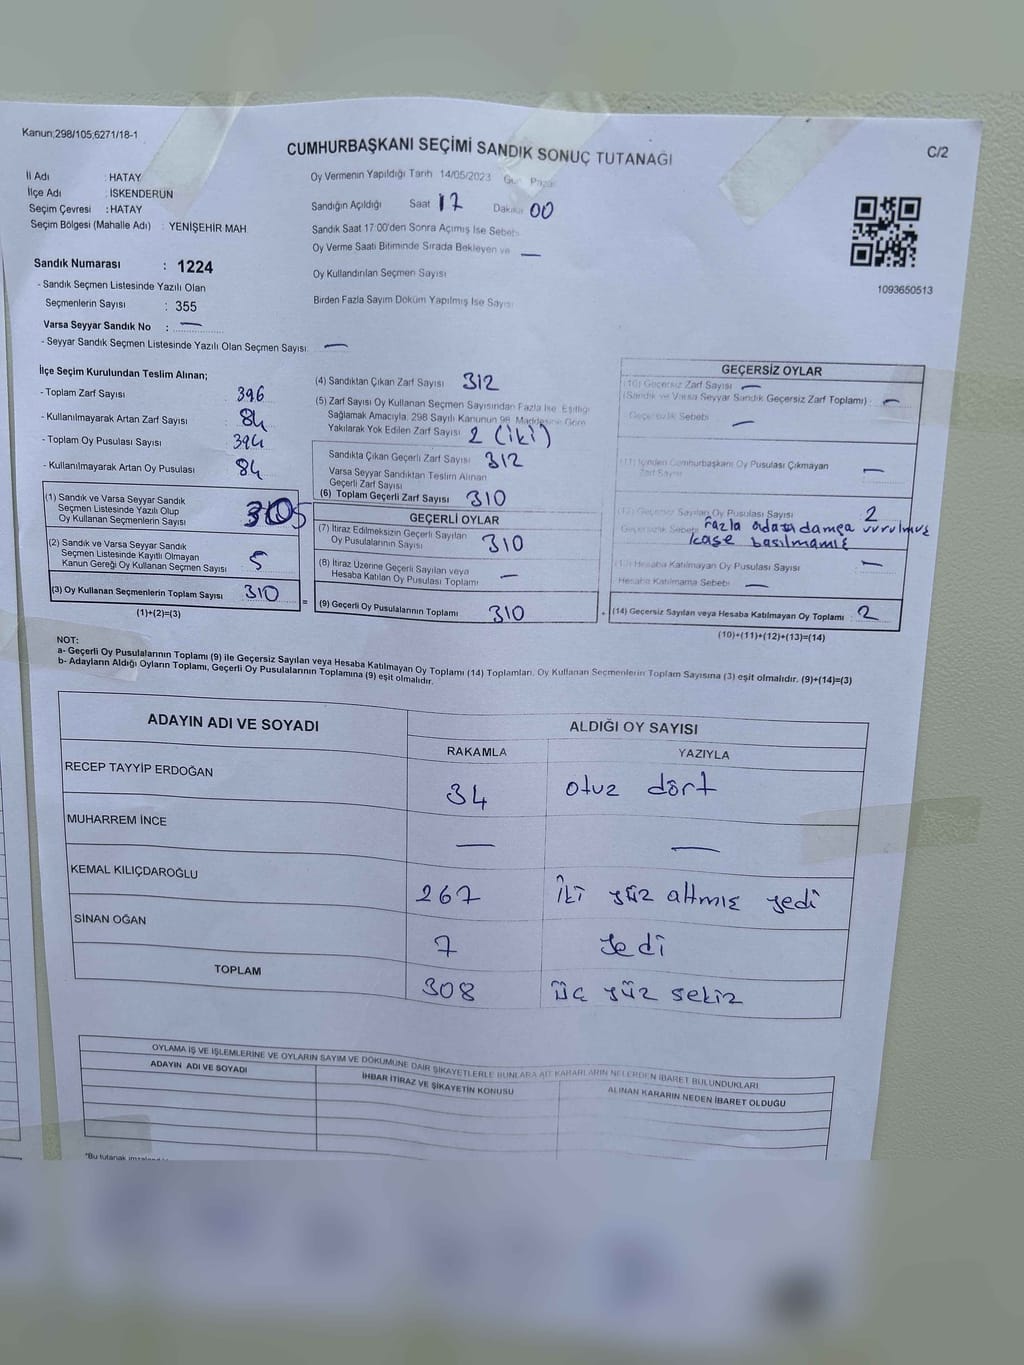 Kanun;298/105,6271/18-1
CUMHURBAŞKANI SEÇİMİ SANDIK SONUÇ TUTANAĞI
C/2
İl Adı : HATAY
İlçe Adı : İSKENDERUN
Seçim Çevresi : HATAY
Seçim Bölgesi (Mahalle Adı) : YENİŞEHİR MAH.
Oy Vermenin Yapıldığı Tarih 14/05/2023 Gün Pazar
Sandığın Açıldığı Saat 17 Dakika 00
Sandık Saat 17:00'den Sonra Açmış İse Sebebi
Oy Verme Saati Bitiminde Sırada Bekleyen ve —
Oy Kullandırılan Seçmen Sayısı
Birden Fazla Sayım Döküm Yapılmış İse Sayısı
1093650513
Sandık Numarası : 1224
- Sandık Seçmen Listesinde Yazılı Olan
Seçmenlerin Sayısı : 355
Varsa Seyyar Sandık No : —
- Seyyar Sandık Seçmen Listesinde Yazılı Olan Seçmen Sayısı —
İlçe Seçim Kurulundan Teslim Alınan;
- Toplam Zarf Sayısı 396
- Kullanılmayarak Artan Zarf Sayısı : 84
- Toplam Oy Pusulası Sayısı 394
- Kullanılmayarak Artan Oy Pusulası 84
(1) Sandık ve Varsa Seyyar Sandık
Seçmen Listesinde Yazılı Olup
Oy Kullanan Seçmenlerin Sayısı 305
(2) Sandık ve Varsa Seyyar Sandık
Seçmen Listesinde Kayıtlı Olmayan
Kanun Gereği Oy Kullanan Seçmen Sayısı 5
(3) Oy Kullanan Seçmenlerin Toplam Sayısı 310
(1)+(2)=(3)
(4) Sandıktan Çıkan Zarf Sayısı 312
(5) Zarf Sayısı Oy Kullanan Seçmen Sayısından Fazla İse, Eşitliği
Sağlamak Amacıyla, 298 Sayılı Kanunun 98. Maddesine Göre
Yakılarak Yok Edilen Zarf Sayısı 2 (iki)
Sandıkta Çıkan Geçerli Zarf Sayısı 312
Varsa Seyyar Sandıktan Teslim Alınan
Geçerli Zarf Sayısı
(6) Toplam Geçerli Zarf Sayısı 310
GEÇERLİ OYLAR
(7) İtiraz Edilmeksizin Geçerli Sayılan
Oy Pusulalarının Sayısı 310
(8) İtiraz Üzerine Geçerli Sayılan veya
Hesaba Katılan Oy Pusulası Toplamı —
= (9) Geçerli Oy Pusulalarının Toplamı 310
GEÇERSİZ OYLAR
(10) Geçersiz Zarf Sayısı —
(Sandık ve Varsa Seyyar Sandık Geçersiz Zarf Toplamı) : —
Geçersizlik Sebebi —
(11) İçinden Cumhurbaşkanı Oy Pusulası Çıkmayan
Zarf Sayısı —
(12) Geçersiz Sayılan Oy Pusulası Sayısı 2
Geçersizlik Sebebi Fazla adaya damga vurulmuş
kaşe basılmamış
(13) Hesaba Katılmayan Oy Pusulası Sayısı —
Hesaba Katılmama Sebebi —
+ (14) Geçersiz Sayılan veya Hesaba Katılmayan Oy Toplamı 2
(10)+(11)+(12)+(13)=(14)
NOT:
a- Geçerli Oy Pusulalarının Toplamı (9) ile Geçersiz Sayılan veya Hesaba Katılmayan Oy Toplamı (14) Toplamları, Oy Kullanan Seçmenlerin Toplam Sayısına (3) eşit olmalıdır. (9)+(14)=(3)
b- Adayların Aldığı Oyların Toplamı, Geçerli Oy Pusulalarının Toplamına (9) eşit olmalıdır.
ADAYIN ADI VE SOYADI
ALDIĞI OY SAYISI
RAKAMLA YAZIYLA
RECEP TAYYİP ERDOĞAN 34 otuz dört
MUHARREM İNCE — —
KEMAL KILIÇDAROĞLU 267 iki yüz altmış yedi
SİNAN OĞAN 7 yedi
TOPLAM 308 üç yüz sekiz
OYLAMA İŞ VE İŞLEMLERİNE VE OYLARIN SAYIM VE DÖKÜMÜNE DAİR ŞİKAYETLERLE BUNLARA AİT KARARLARIN NELERDEN İBARET BULUNDUKLARI
ADAYIN ADI VE SOYADI
İHBAR İTİRAZ VE ŞİKAYETİN KONUSU
ALINAN KARARIN NEDEN İBARET OLDUĞU
*Bu tutanak